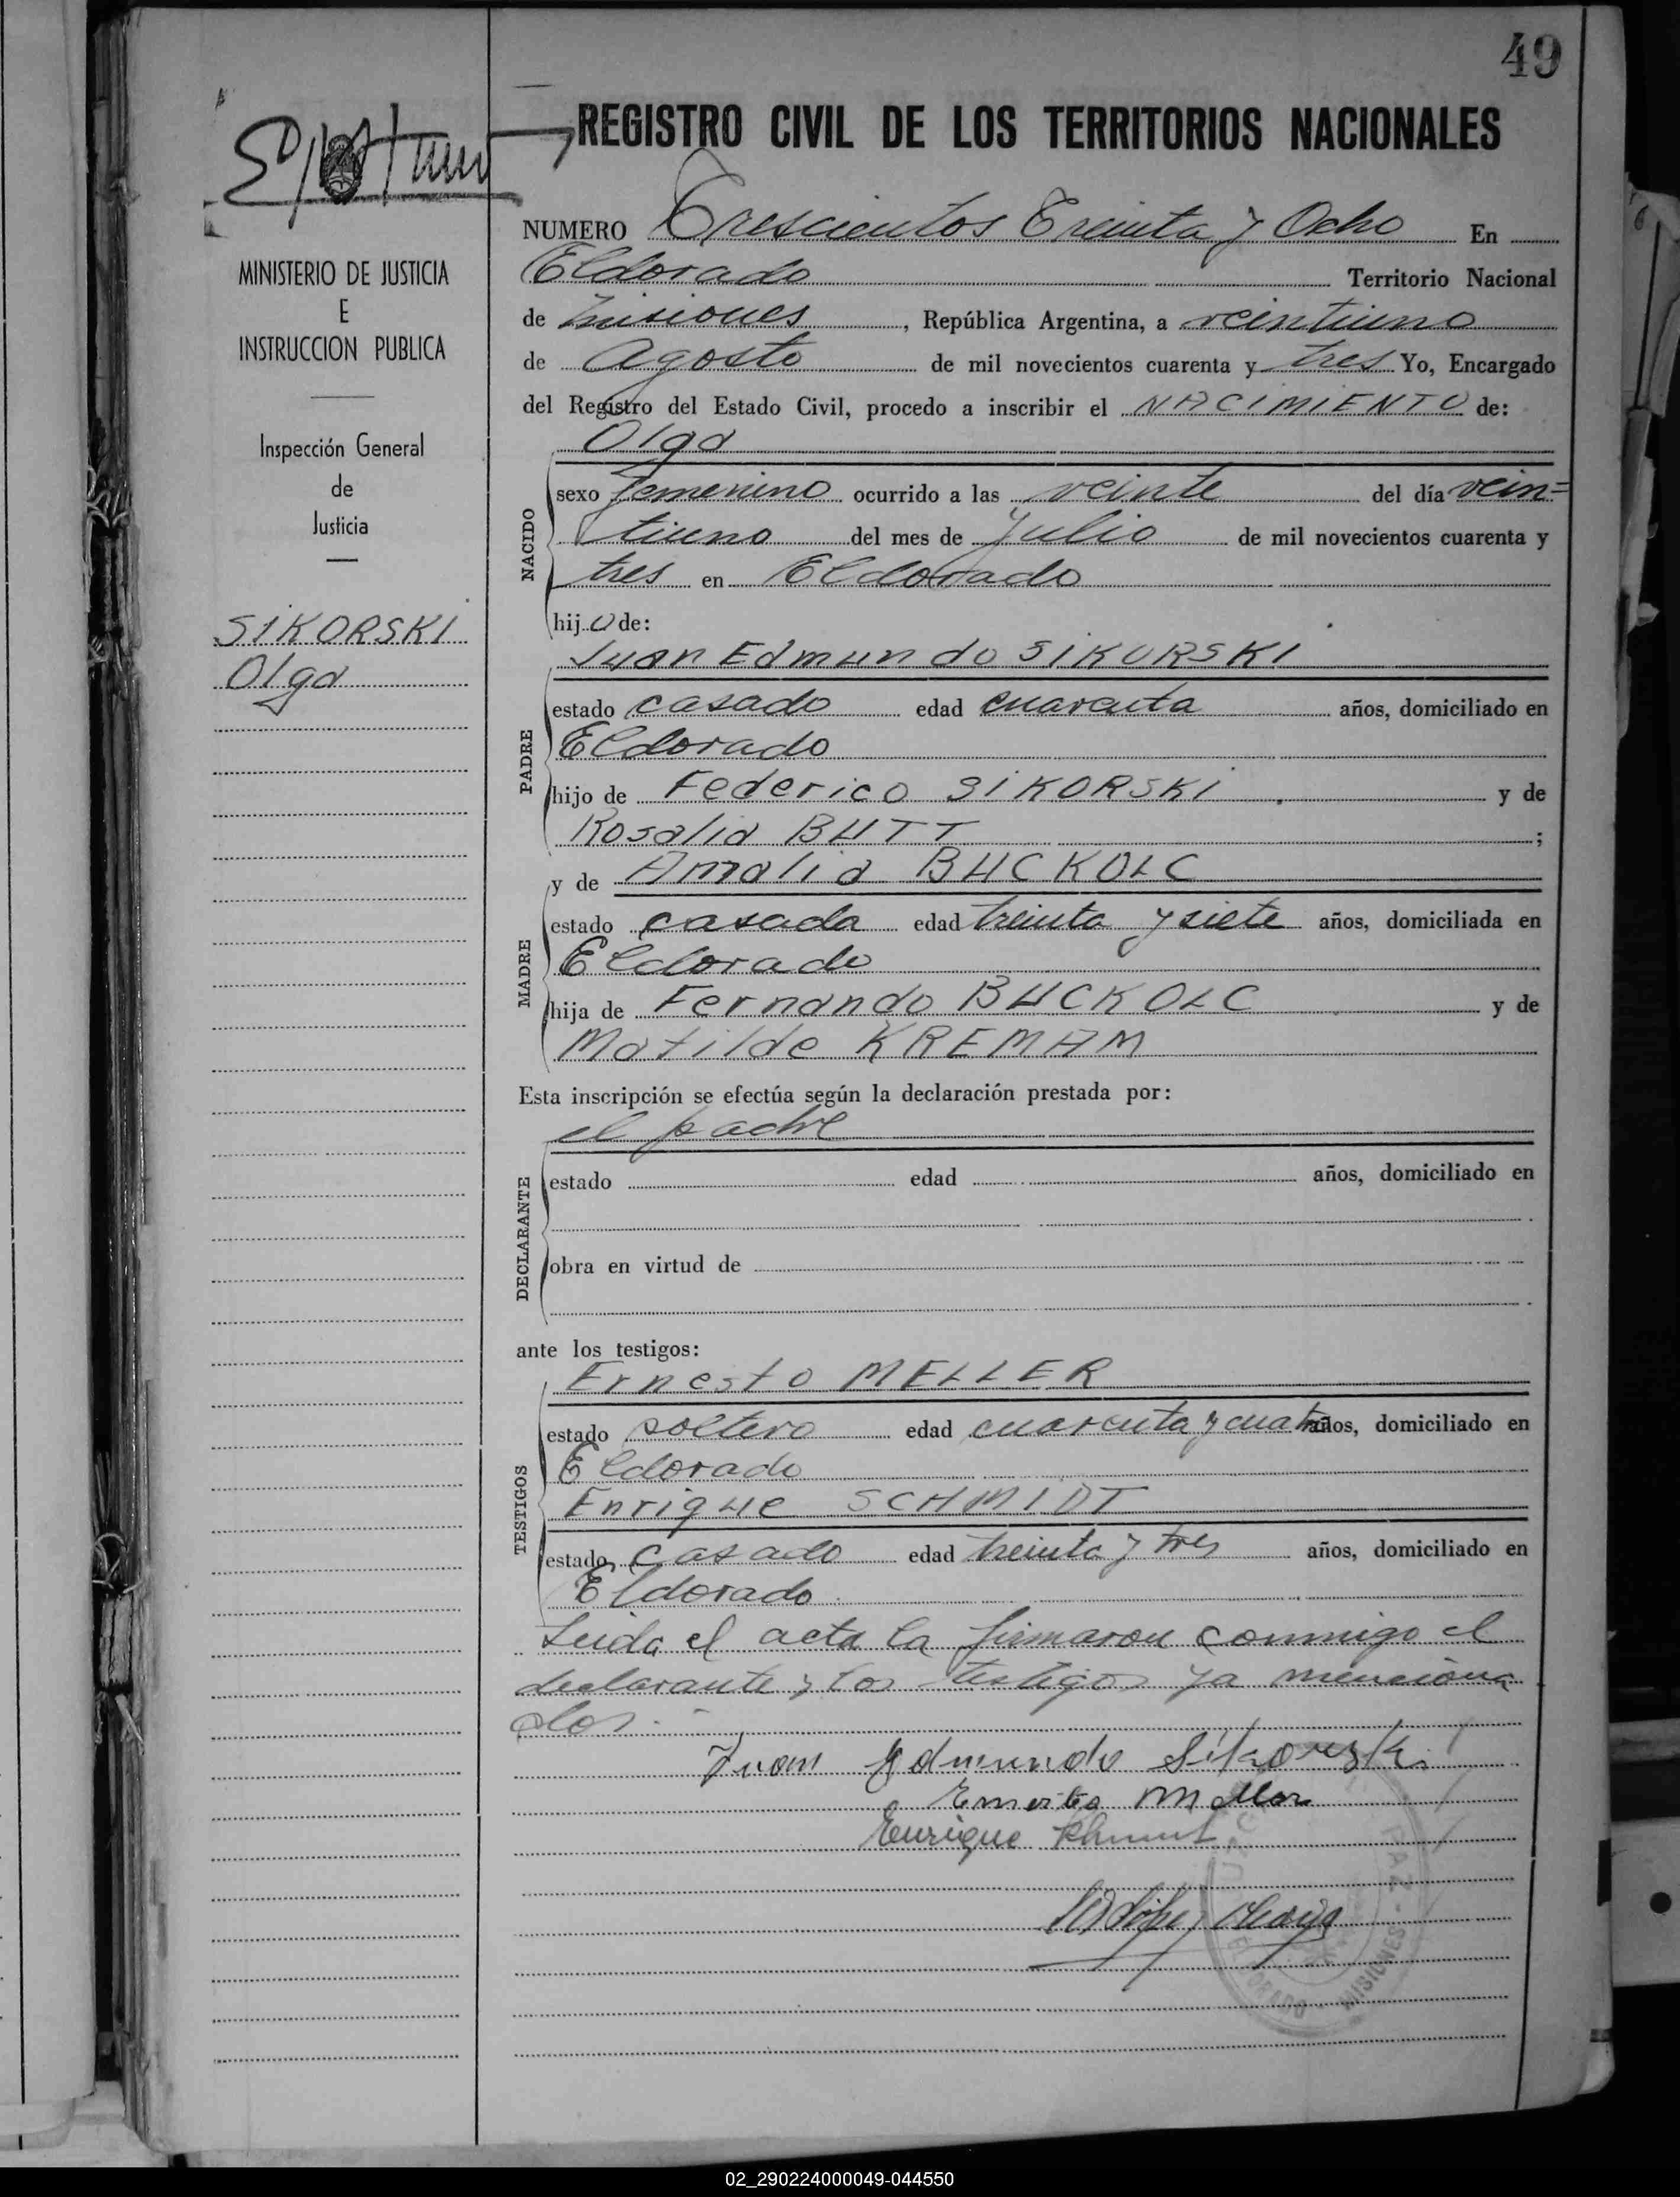 49
REGISTRO CIVIL DE LOS TERRITORIOS NACIONALES
MINISTERIO DE JUSTICIA
E
INSTRUCCION PUBLICA
Inspección General
de
Justicia
SIKORSKI
Olga
NUMERO Trescientos Treinta y Ocho En
Eldorado Territorio Nacional
de Misiones, República Argentina, a veintiuno
de Agosto de mil novecientos cuarenta y tres Yo, Encargado
del Registro del Estado Civil, procedo a inscribir el NACIMIENTO de:
Olga
NACIDO
sexo femenino ocurrido a las veinte del día vein=
tiuno del mes de Julio de mil novecientos cuarenta y
tres en Eldorado
hij a de:
Juan Edmundo SIKORSKI
PADRE
estado casado edad cuarenta años, domiciliado en
Eldorado
hijo de Federico SIKORSKI y de
Rosalia BUTT ;
y de Amalia BUCKOLC
MADRE
estado casada edad treinta y siete años, domiciliada en
Eldorado
hija de Fernando BUCKOLC y de
Matilde KREMAM
Esta inscripción se efectúa según la declaración prestada por:
el padre
DECLARANTE
estado edad años, domiciliado en
obra en virtud de
ante los testigos:
Ernesto MELLER
TESTIGOS
estado soltero edad cuarenta y cuatro años, domiciliado en
Eldorado
Enrique SCHMIDT
estado casado edad treinta y tres años, domiciliado en
Eldorado
Leida el acta la firmaron conmigo el
declarante y los testigos ya menciona
dos.-
Juan Edmundo Sikorski
Ernesto Meller
Enrique
PAZ - MISIONES
ELDORADO
02_290224000049-044550